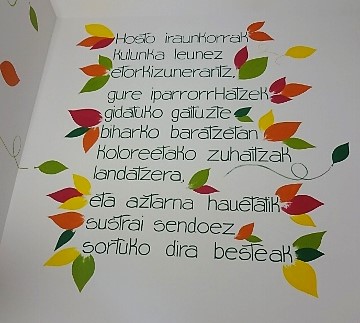 Hosto iraunkorrak
kulunka leunez
etorkizunerantz,
gure iparrorrHatzek
gidatuko gaituzte
biharko baratzetan
koloreetako zuhaitzak
landatzera,
eta aztarna hauetatik
sustrai sendoez
sortuko dira besteak